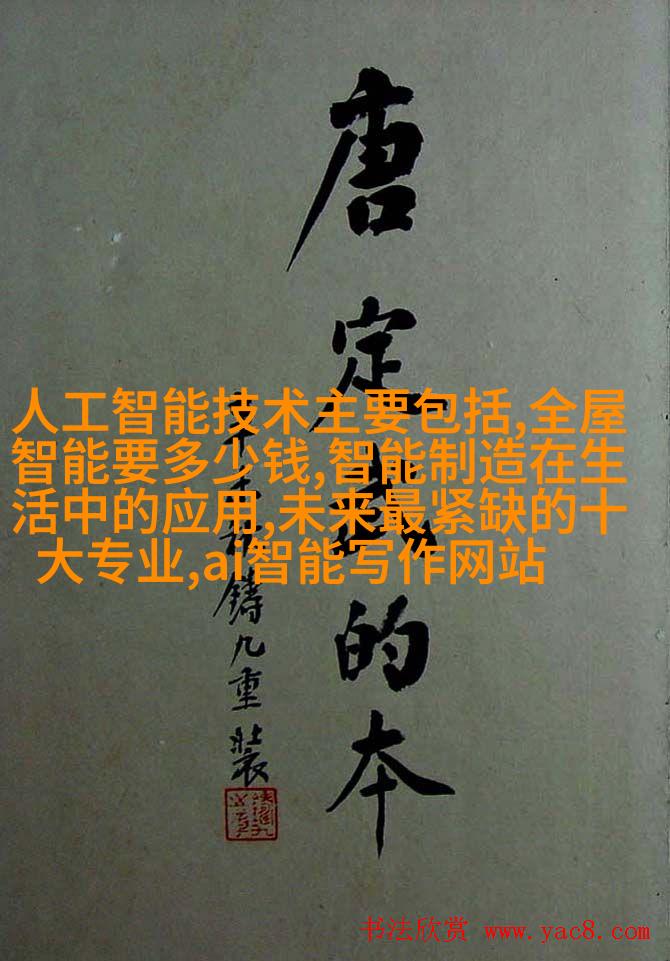 唐定武的本
鑄九重裝
人工智能技术主要包括,全屋
智能要多少钱,智能制造在生
活中的应用,未来最紧缺的十
大专业,ai智能写作网站
书法欣赏 www.yac8.com